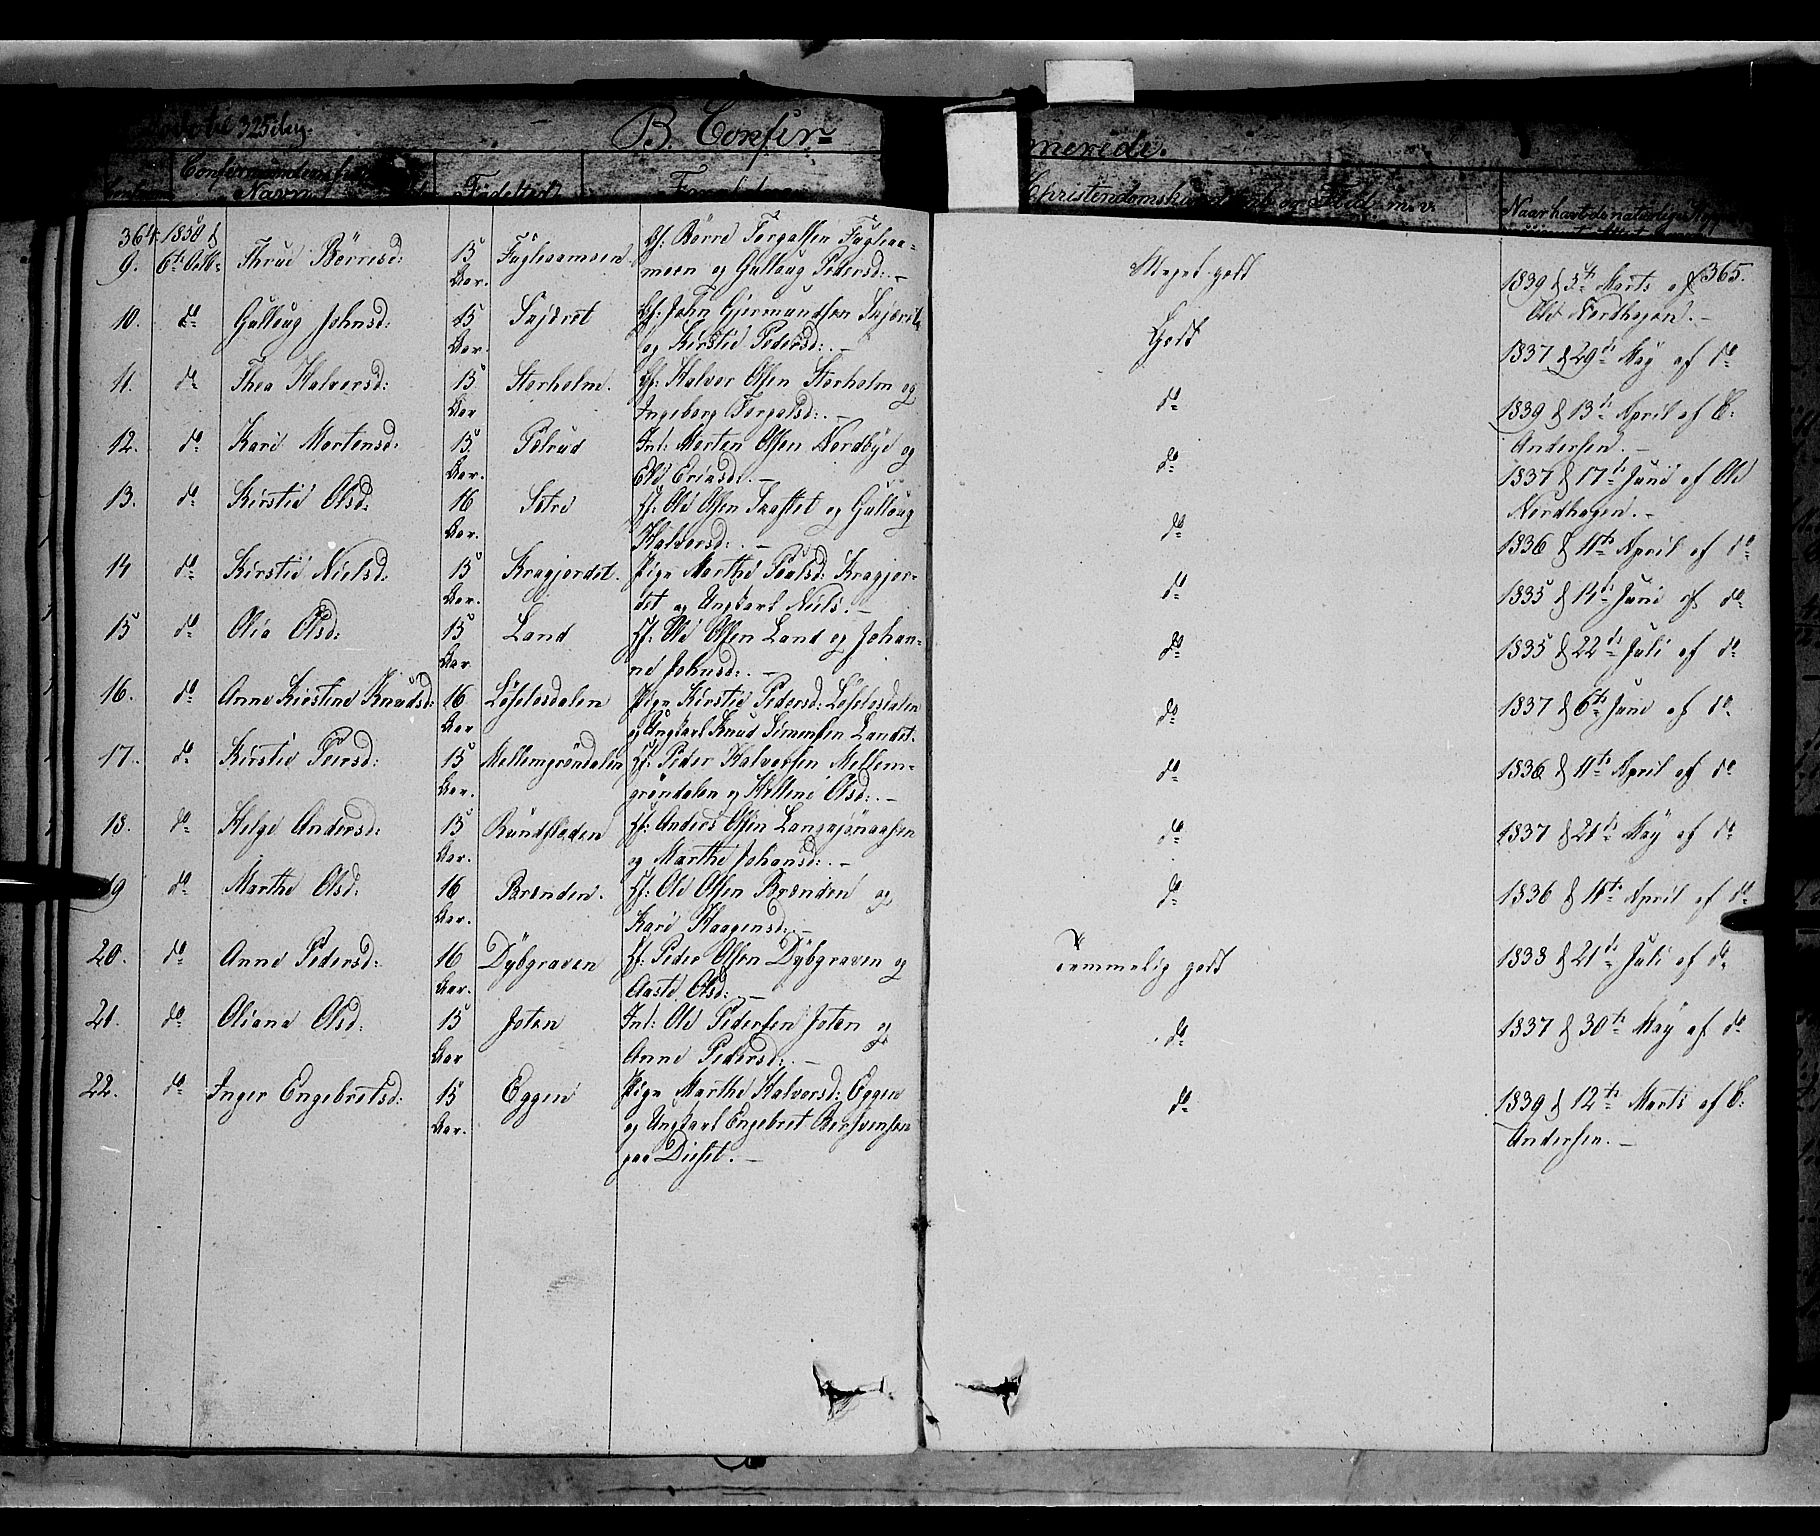 B. Confir=
merede.
Confirmandens
Navn
Fødested
Forældre
Christendomskundskab og Flid m. v.
Naar havt de naturlige Kopper
364. 1850 d
365.
9. 6te Octb: Thrue Børresd: 15 Aar. Fugleaamoen Gf: Børre Torgalsen Fugleaa-
moen og Gulloug Pedersd:. — Meget godt 1839 d 5te Marts af
Ole Nordhagen. —
10. do Gulloug Johnsd: 15 Aar. Sujæret Gf: John Gjermundsen Sujæret
og Kirstie Pedersd:. — Godt 1837 d 29de May af do
11. do Thea Halversd: 15 Aar Storholm. Gf: Halver Olsen Storholm og
Ingeborg Torgalsd:. — do 1839 d 13de April af C:
Andersen. —
12. do Kari Mortensd: 15 Aar. Pålrud Inl: Morten Olsen Nordbye og
Eli Eriksd:. — do 1837 d 17de Juni af Ole
Nordhagen. —
13. do Kirstie Olsd: 16 Aar. Sætre Gf: Ole Olsen Skaftet og Gulloug
Halversd:. — do 1836 d 11te April af do
14 do Kirstie Nielsd: 15 Aar. Kragjordet. Pige Marthe Poulsd: Kragjor-
det og Ungkarl Niels. — do 1835 d 14de Juni af do
15 do Olia Olsd: 15 Aar. Land Gf: Ole Olsen Land og Johan-
ne Johnsd:. — do 1835 d 22de Juli af do
16. do Anne Kirstine Knudsd: 16 Aar Løsetesdalen Pige Kirstie Pedersd: Løsetesdalen
og Ungkarl Knud Simensen Landet. do 1837 d 6te Juni af do
17. do Kirstie Peersd: 15 Aar. Mellemgrøndalen Gf: Peder Halversen Mellem-
grøndalen og Helline Olsd:. — do 1836 d 11te April af do
18. do Helge Andersd: 15 Aar. Rundfloden Gf: Anders Olsen Langsjønaasen
og Marthe Johansd:. — do 1837 d 21de May af do
19 do Marthe Olsd: 16 Aar. Brænden. Gf: Ole Olsen Brænden og
Kari Haagensd:. — do 1836 d 11te April af do
20. do Anne Pedersd: 16 Aar. Dybgraven Gf: Peder Olsen Dybgraven og
Aaste Olsd:. — temmelig godt 1833 d 21de Juli af do
21. do Oliana Olsd: 15 Aar Joten Inl: Ole Pedersen Joten og
Anne Pedersd:. — do 1837 d 30te May af do
22. do Inger Engebretsd: 15 Aar. Eggen Pige Marthe Halversd: Eggen
og Ungkarl Engebret Bersvensen
paa Diset. — do 1839 d 12te Marts af C:
Andersen. —